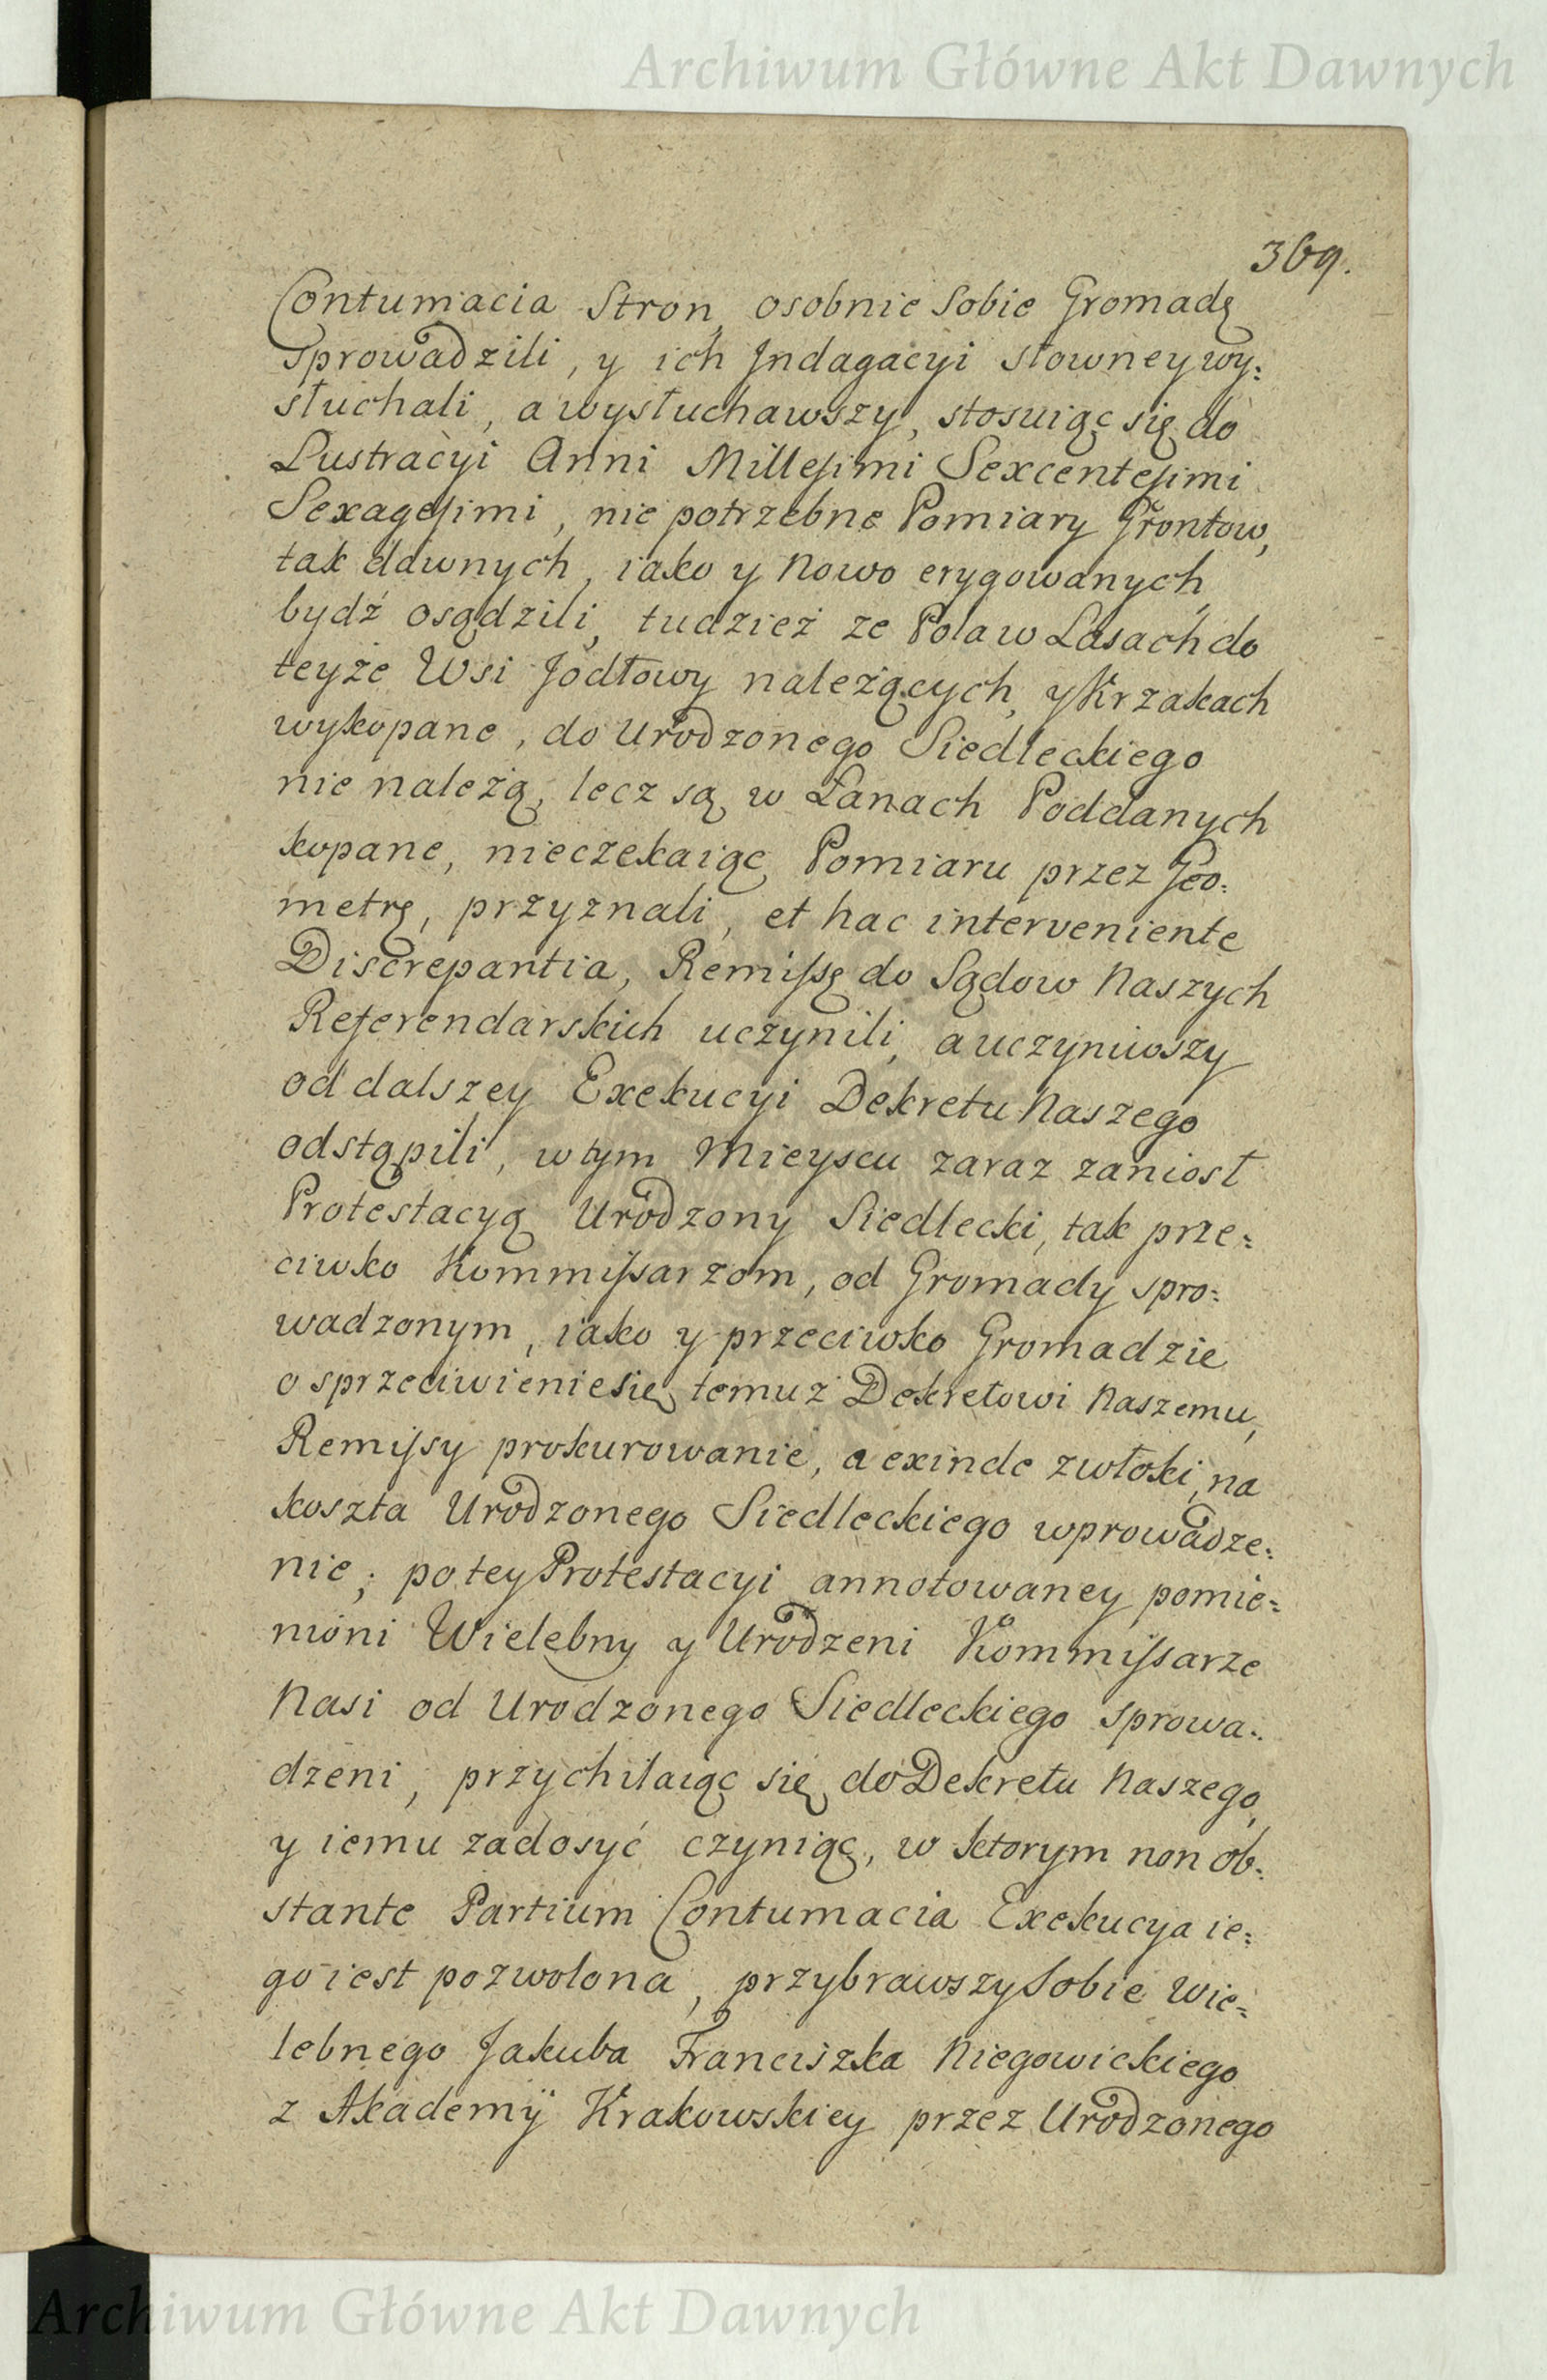 Archiwum Główne Akt Dawnych
369.
Contumacia Stron, osobnie Sobie Gromadę
Sprowadzili, y ich Jndagacyi słowney wy:
słuchali, a wysłuchawszy, stosuiąc się do
Lustracyi Anni Millesimi Sexcentesimi
Sexagesimi, nie potrzebne Pomiary Grontow,
tak dawnych, iako y Nowo erygowanych,
bydź osądzili, tudzież ze Pola w Lasach do
teyże Wsi Jodłowy należących, y Krzakach
wykopane, do Urodzonego Siedleckiego
nie należą, lecz są w Łanach Poddanych
kopane, nieczekaiąc Pomiaru przez Jeo:
metrę, przyznali, et hac interveniente
Discrepantia, Remissę do Sądow Naszych
Referendarskich uczynili, a uczyniwszy
od dalszey Exekucyi Dekretu Naszego
odstąpili, w tym Mieyscu zaraz zaniosł
Protestacyą Urodzony Siedlecki, tak prze:
ciwko Kommissarzom, od Gromady spro:
wadzonym, iako y przeciwko Gromadzie
o sprzeciwienie się temuż Dekretowi Naszemu,
Remissy prokurowanie, a exinde zwłoki, na
koszta Urodzonego Siedleckiego wprowadze:
nie; po tey Protestacyi annotowaney, pomie:
nioni Wielebny y Urodzeni Kommissarze
Nasi od Urodzonego Siedleckiego sprowa:
dzeni, przychilaiąc się do Dekretu Naszego,
y iemu zadosyć czyniąc, w ktorym non ob:
stante Partium Contumacia Exekucya ie:
go iest pozwolona, przybrawszy Sobie Wie:
lebnego Jakuba Franciszka Niegowickiego
z Akademÿ Krakowskiey przez Urodzonego
Archiwum Główne Akt Dawnych